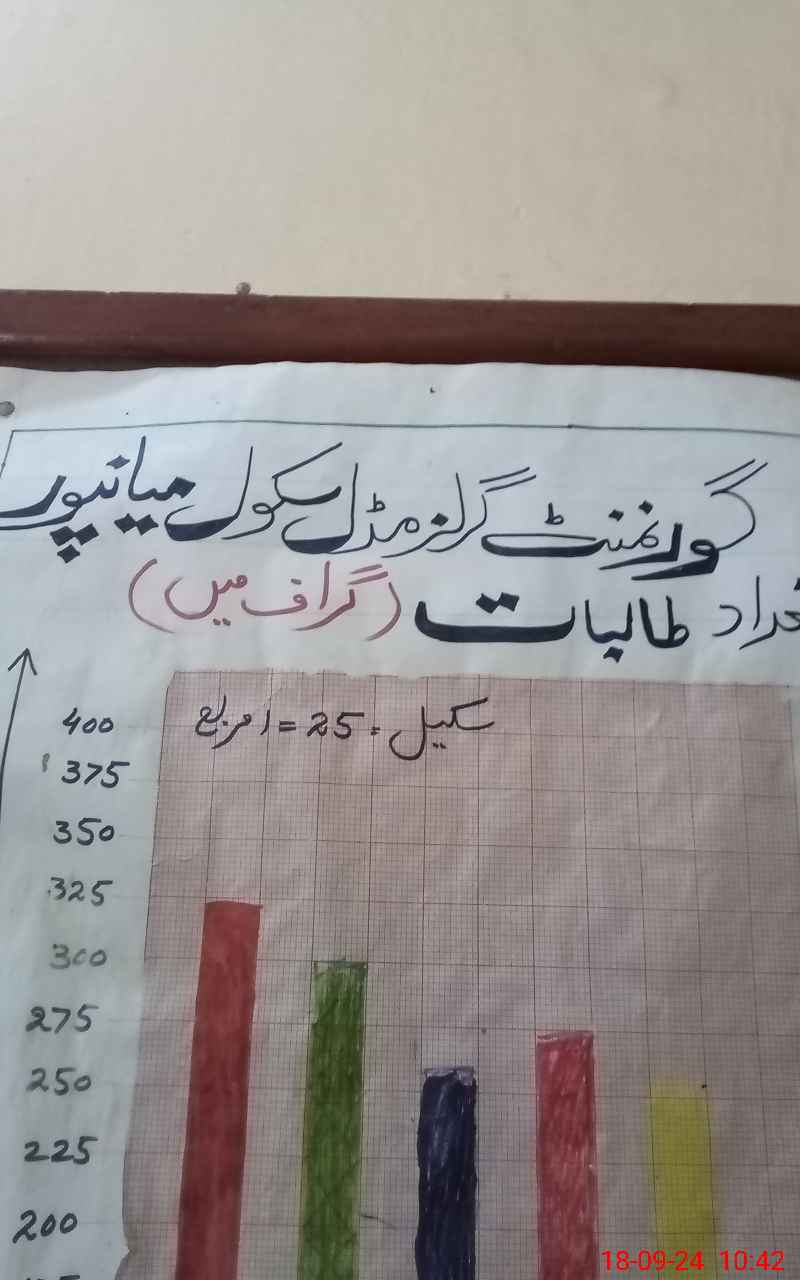 گورنمنٹ گرلز مڈل سکول میانپور
تعداد طالبات (گراف میں)
سکیل = 25 = 1 مربع
400
375
350
325
300
275
250
225
200
18-09-24 10:42